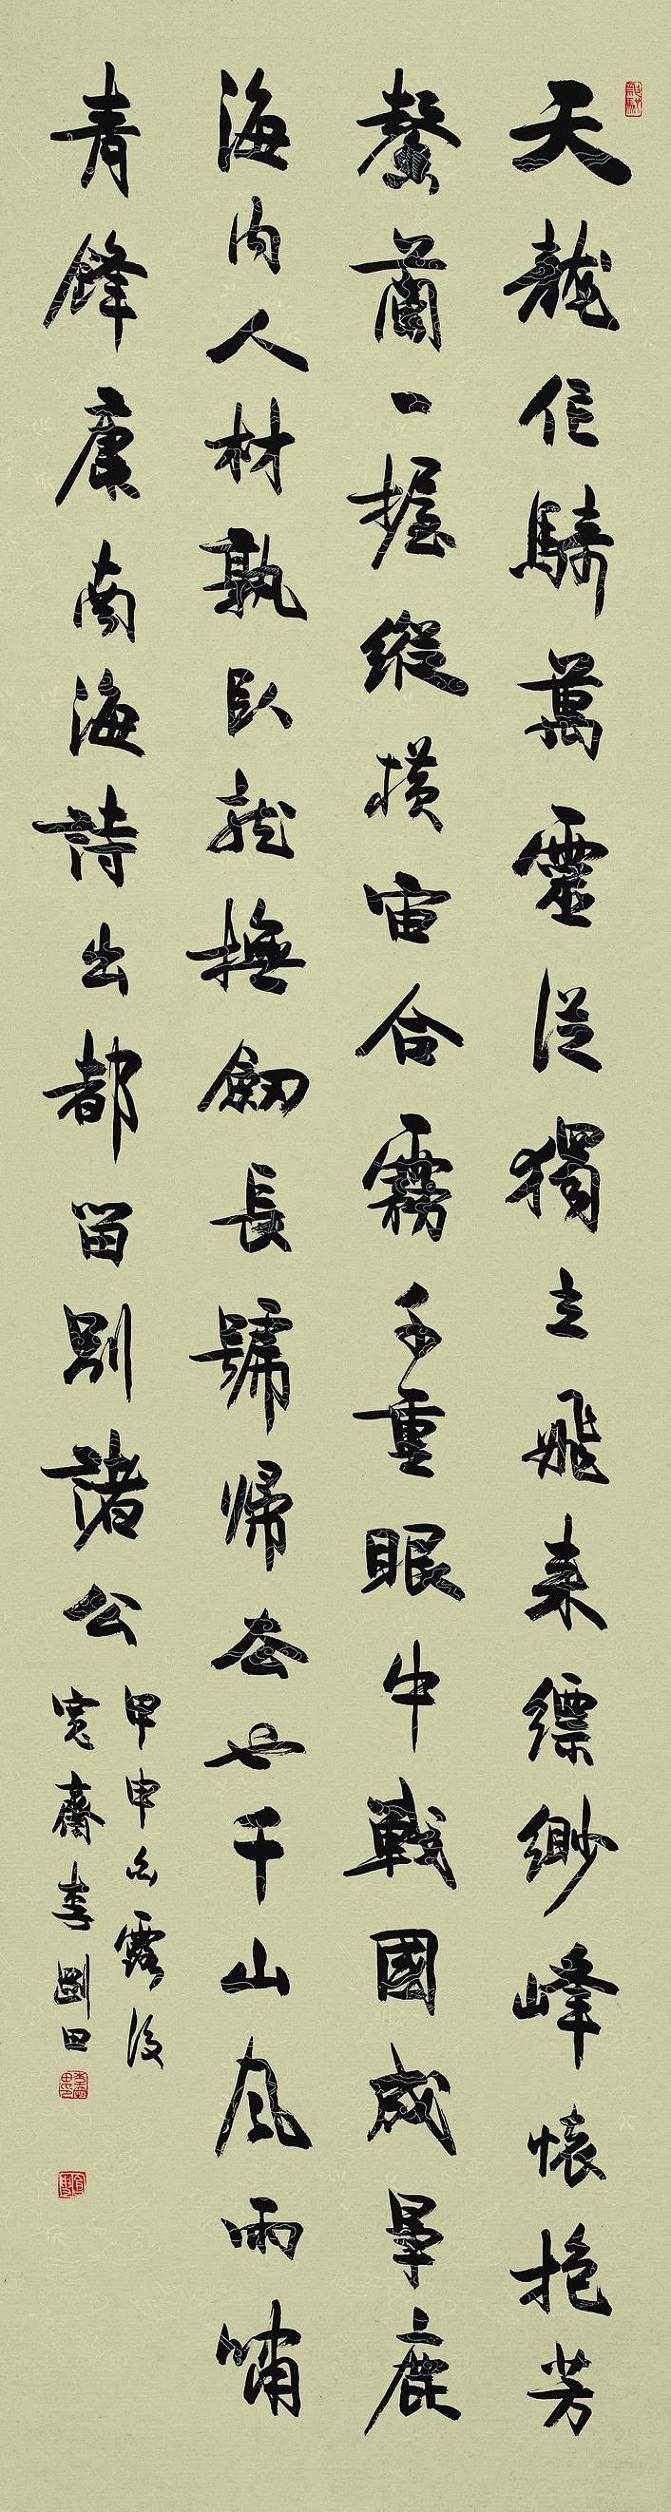 天龍作騎萬靈從獨立飛来縹緲峰懷抱芳
馨蘭一握縱橫宙合霧千重眼中戰國成爭鹿
海内人材孰臥龍撫劒長號歸去也千山風雨嘯
青鋒康南海詩出都留別諸公
甲申白露後
寬齋李剛田